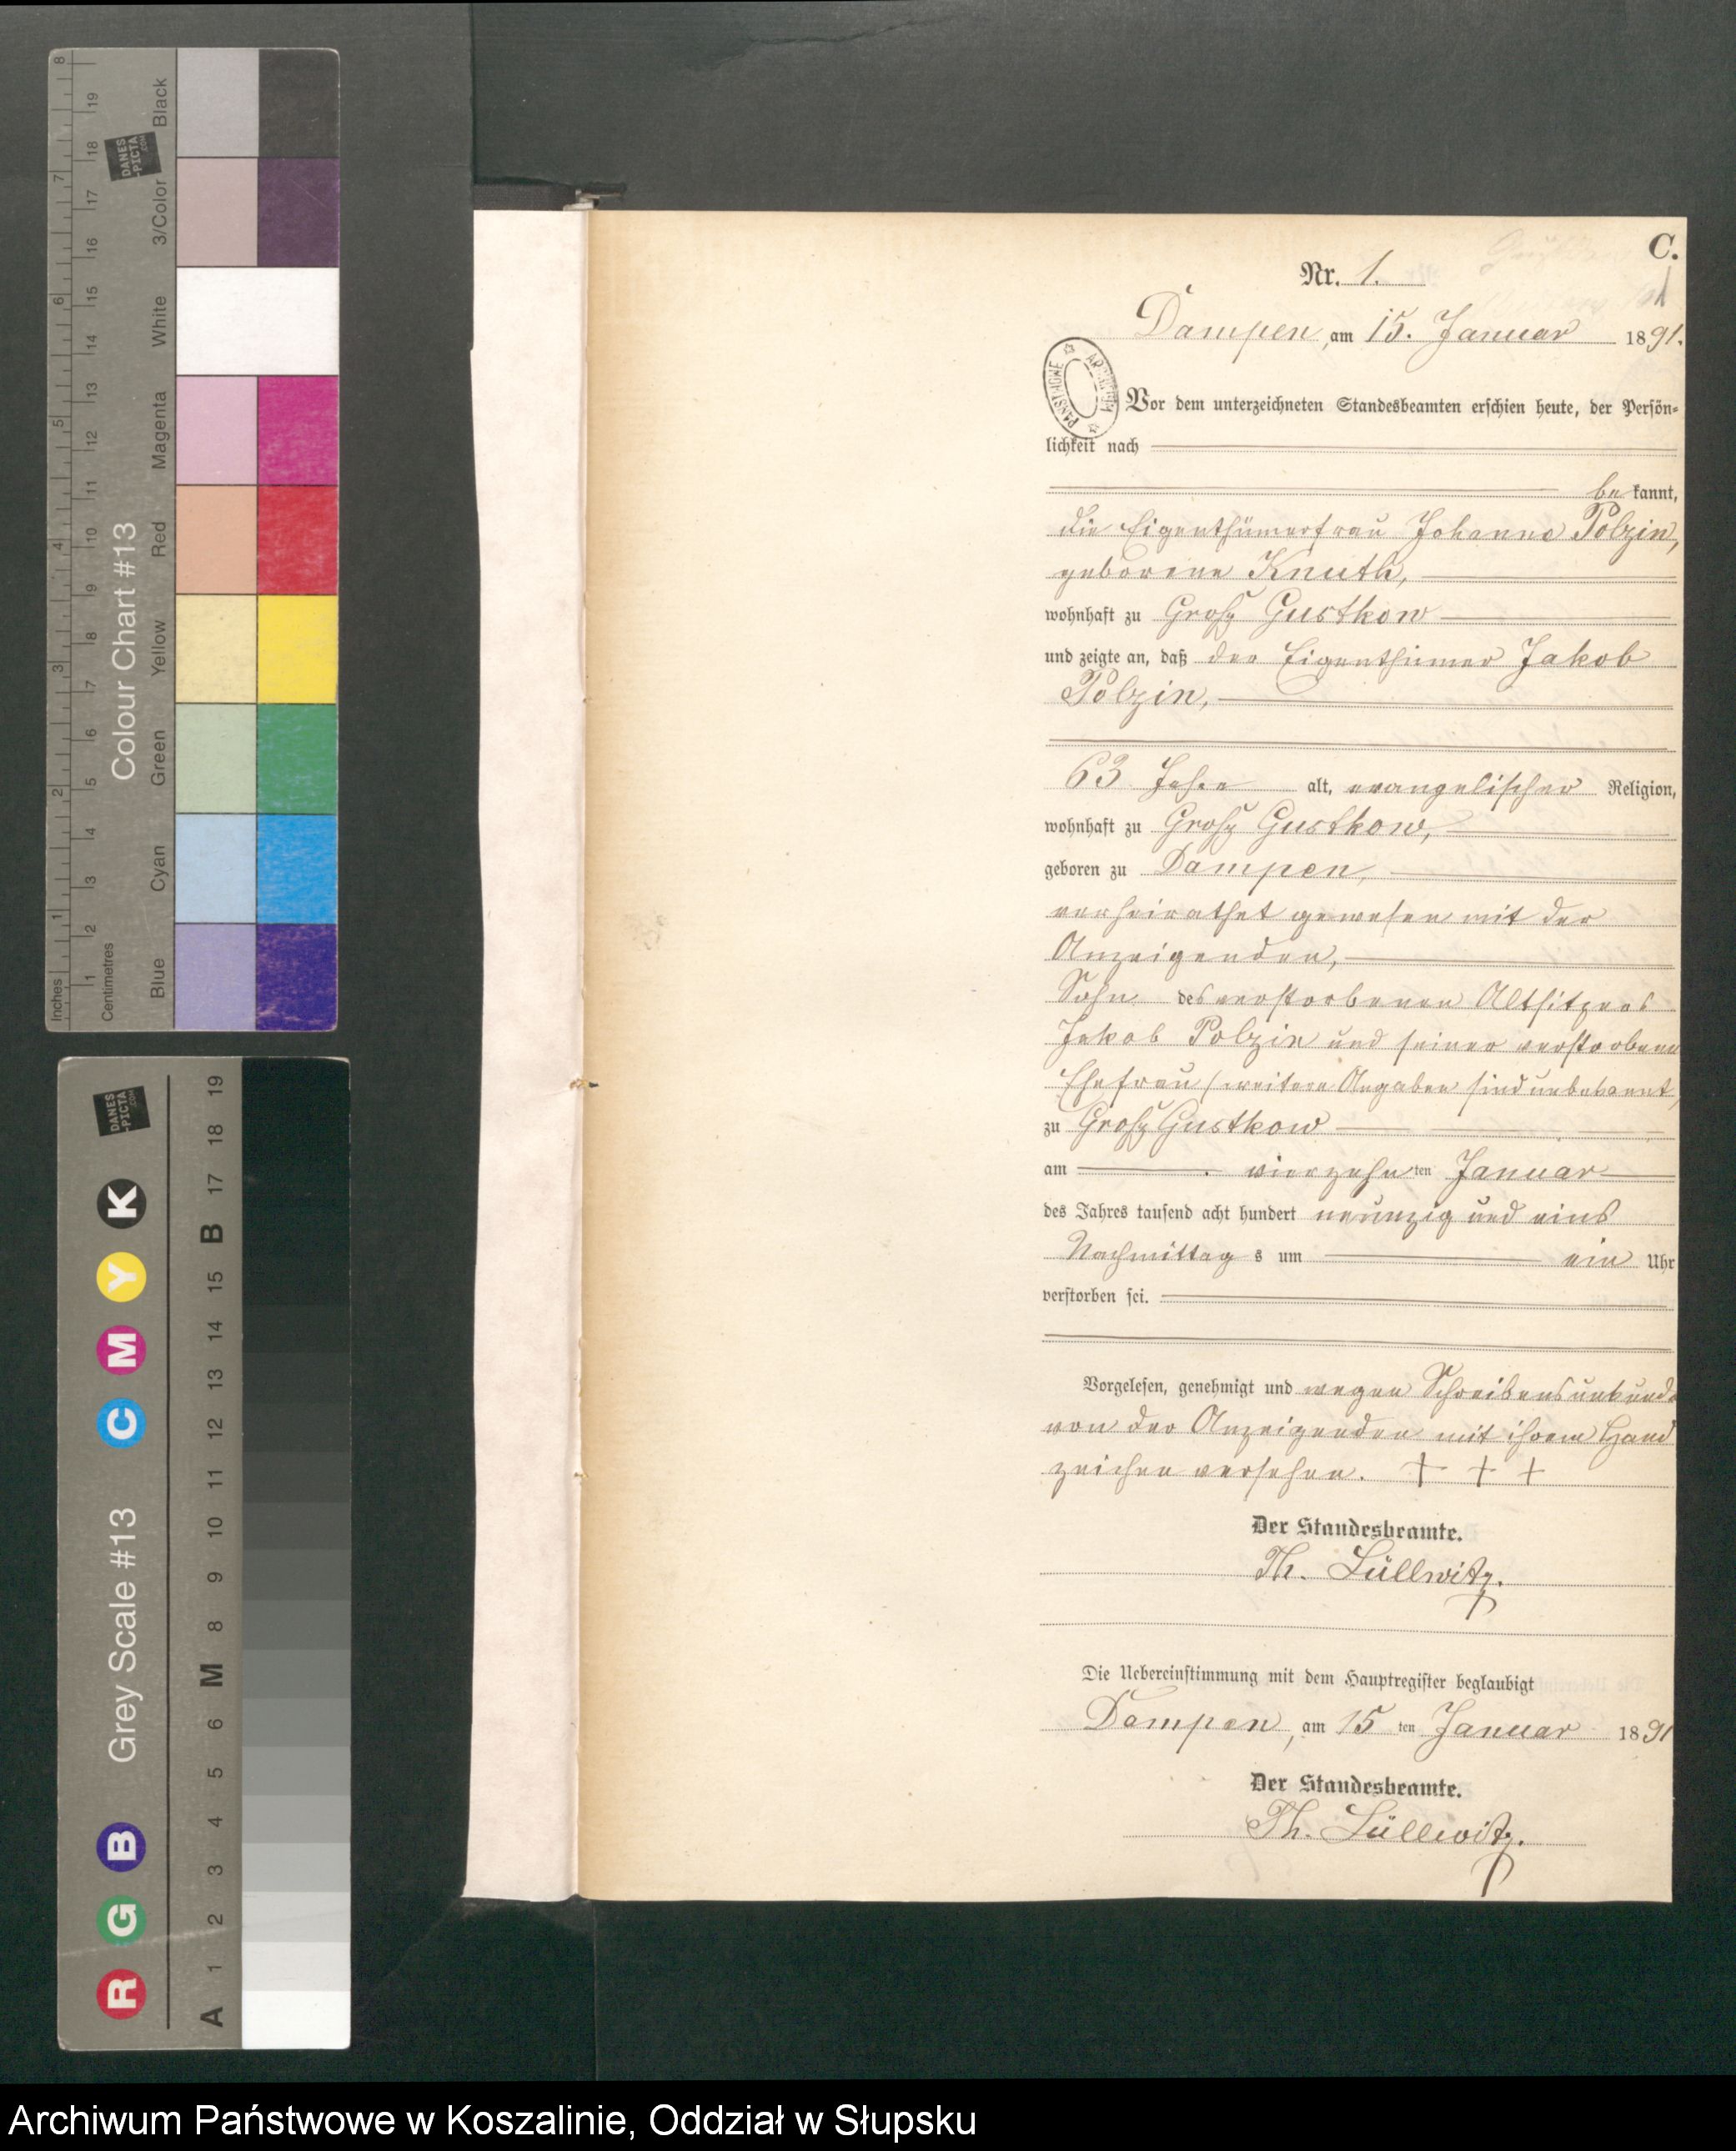 C.
Nr. 1.
1
Dampen, am 15. Januar 1891.
Vor dem unterzeichneten Standesbeamten erschien heute, der Persön-
lichkeit nach
be kannt,
die Eigenthümerfrau Johanne Polzin,
geborene Knuth,
wohnhaft zu Groß Gustkow
und zeigte an, daß der Eigenthümer Jakob
Polzin,
63 Jahre alt, evangelischer Religion,
wohnhaft zu Groß Gustkow,
geboren zu Dampen,
verheirathet gewesen mit der
Anzeigenden,
Sohn des verstorbenen Altsitzers
Jakob Polzin und seiner verstorbenen
Ehefrau (weitere Angaben sind unbekannt)
zu Groß Gustkow
am vierzehn ten Januar
des Jahres tausend acht hundert neunzig und eins
Nachmittag s um ein Uhr
verstorben sei.
Vorgelesen, genehmigt und wegen Schreibensunkunde
von der Anzeigenden mit ihrem Hand
zeichen versehen. + + +
Der Standesbeamte.
Th. Lüllwitz.
Die Uebereinstimmung mit dem Hauptregister beglaubigt
Dampen, am 15 ten Januar 1891
Der Standesbeamte.
Th. Lüllwitz.
Colour Chart #13
Inches
Centimetres
Blue Cyan Green Yellow Red Magenta White 3/Color Black
DANES
-PICTA
.COM
1 2 3 4 5 6 7 8
1 2 3 4 5 6 7 8 9 10 11 12 13 14 15 16 17 18 19
Grey Scale #13
R G B C M Y K
DANES
-PICTA
.COM
A 1 2 3 4 5 6 M 8 9 10 11 12 13 14 15 B 17 18 19
Archiwum Państwowe w Koszalinie, Oddział w Słupsku